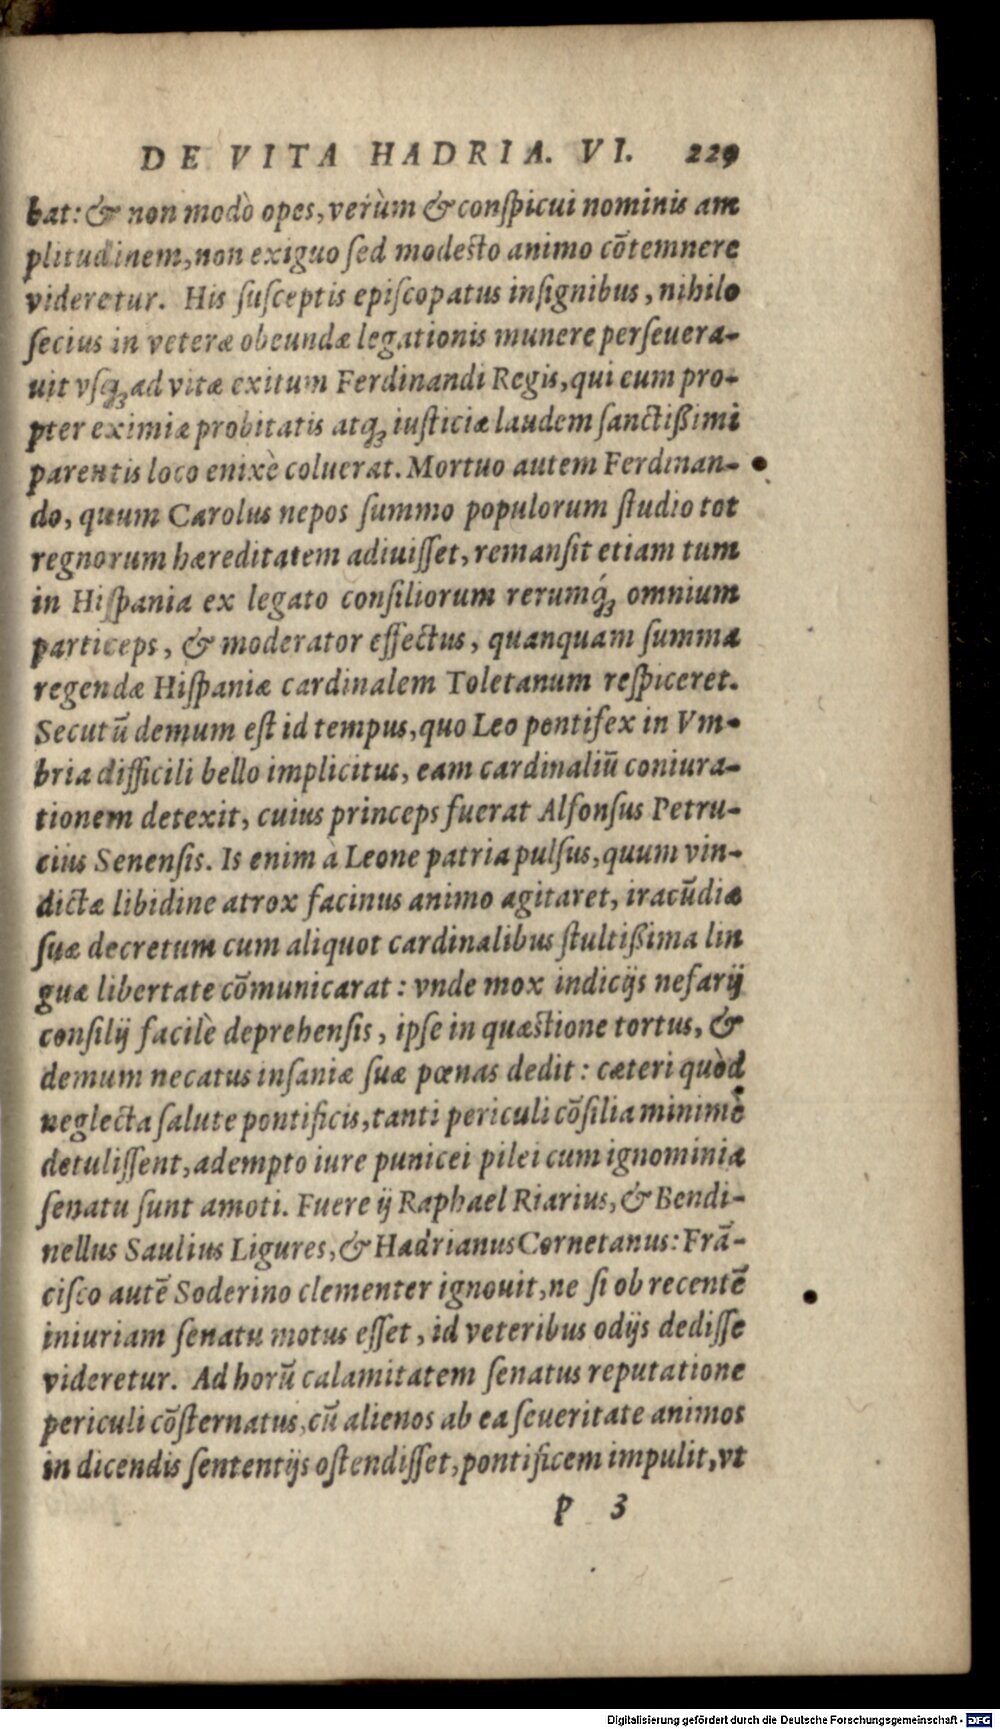 DE VITA HADRIA. VI. 229
bat: & non modò opes, verùm & conſpicui nominis am
plitudinem, non exiguo ſed modeſto animo cõtemnere
videretur. His ſuſceptis epiſcopatus inſignibus, nihilo
ſecius in veteræ obeundæ legationis munere perſeuera-
uit vſq; ad vitæ exitum Ferdinandi Regis, qui eum pro-
pter eximiæ probitatis atq; iuſticiæ laudem ſanctißimi
parentis loco enixè coluerat. Mortuo autem Ferdinan-
do, quum Carolus nepos ſummo populorum ſtudio tot
regnorum hæreditatem adiuiſſet, remanſit etiam tum
in Hiſpania ex legato conſiliorum rerumq́; omnium
particeps, & moderator effectus, quanquam ſumma
regendæ Hiſpaniæ cardinalem Toletanum reſpiceret.
Secutũ demum eſt id tempus, quo Leo pontifex in Vm-
bria difficili bello implicitus, eam cardinaliũ coniura-
tionem detexit, cuius princeps fuerat Alfonſus Petru-
cius Senenſis. Is enim à Leone patria pulſus, quum vin-
dictæ libidine atrox facinus animo agitaret, iracũdiæ
ſuæ decretum cum aliquot cardinalibus ſtultißima lin
guæ libertate cõmunicarat: vnde mox indicijs nefarij
conſilij facilè deprehenſis, ipſe in quæſtione tortus, &
demum necatus inſaniæ ſuæ pœnas dedit: cæteri quòd
neglecta ſalute pontificis, tanti periculi cõſilia minimè
detuliſſent, adempto iure punicei pilei cum ignominia
ſenatu ſunt amoti. Fuere ij Raphael Riarius, & Bendi-
nellus Saulius Ligures, & Hadrianus Cornetanus: Frã-
ciſco autẽ Soderino clementer ignouit, ne ſi ob recentẽ
iniuriam ſenatu motus eſſet, id veteribus odijs dediſſe
videretur. Ad horũ calamitatem ſenatus reputatione
periculi cõſternatus, cũ alienos ab ea ſeueritate animos
in dicendis ſententijs oſtendiſſet, pontificem impulit, vt
p 3
Digitalisierung gefördert durch die Deutsche Forschungsgemeinschaft - DFG